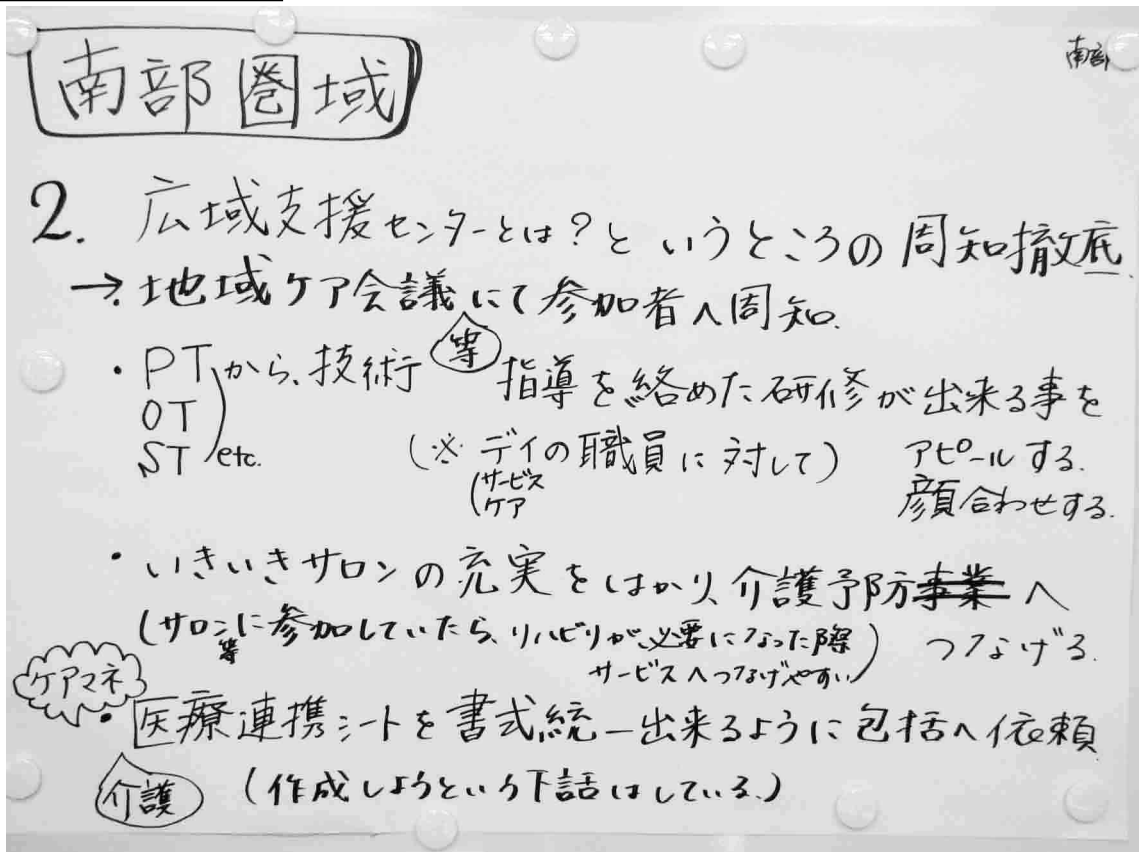 南部圏域
南部
2. 広域支援センターとは?というところの周知徹底.
→. 地域ケア会議にて参加者へ周知.
・PT から、技術 等 指導を絡めた研修が出来る事を
OT
ST etc. (※ デイの職員に対して) アピールする.
(サービス
ケア 顔合わせする.
・いきいきサロンの充実をはかり、介護予防事業へ
(サロン等に参加していたら、リハビリが、必要になった際 つなげる.
サービスへつなげやすい)
ケアマネ
・医療連携シートを書式統一出来るように包括へ依頼
介護 (作成しようという下話はしている.)